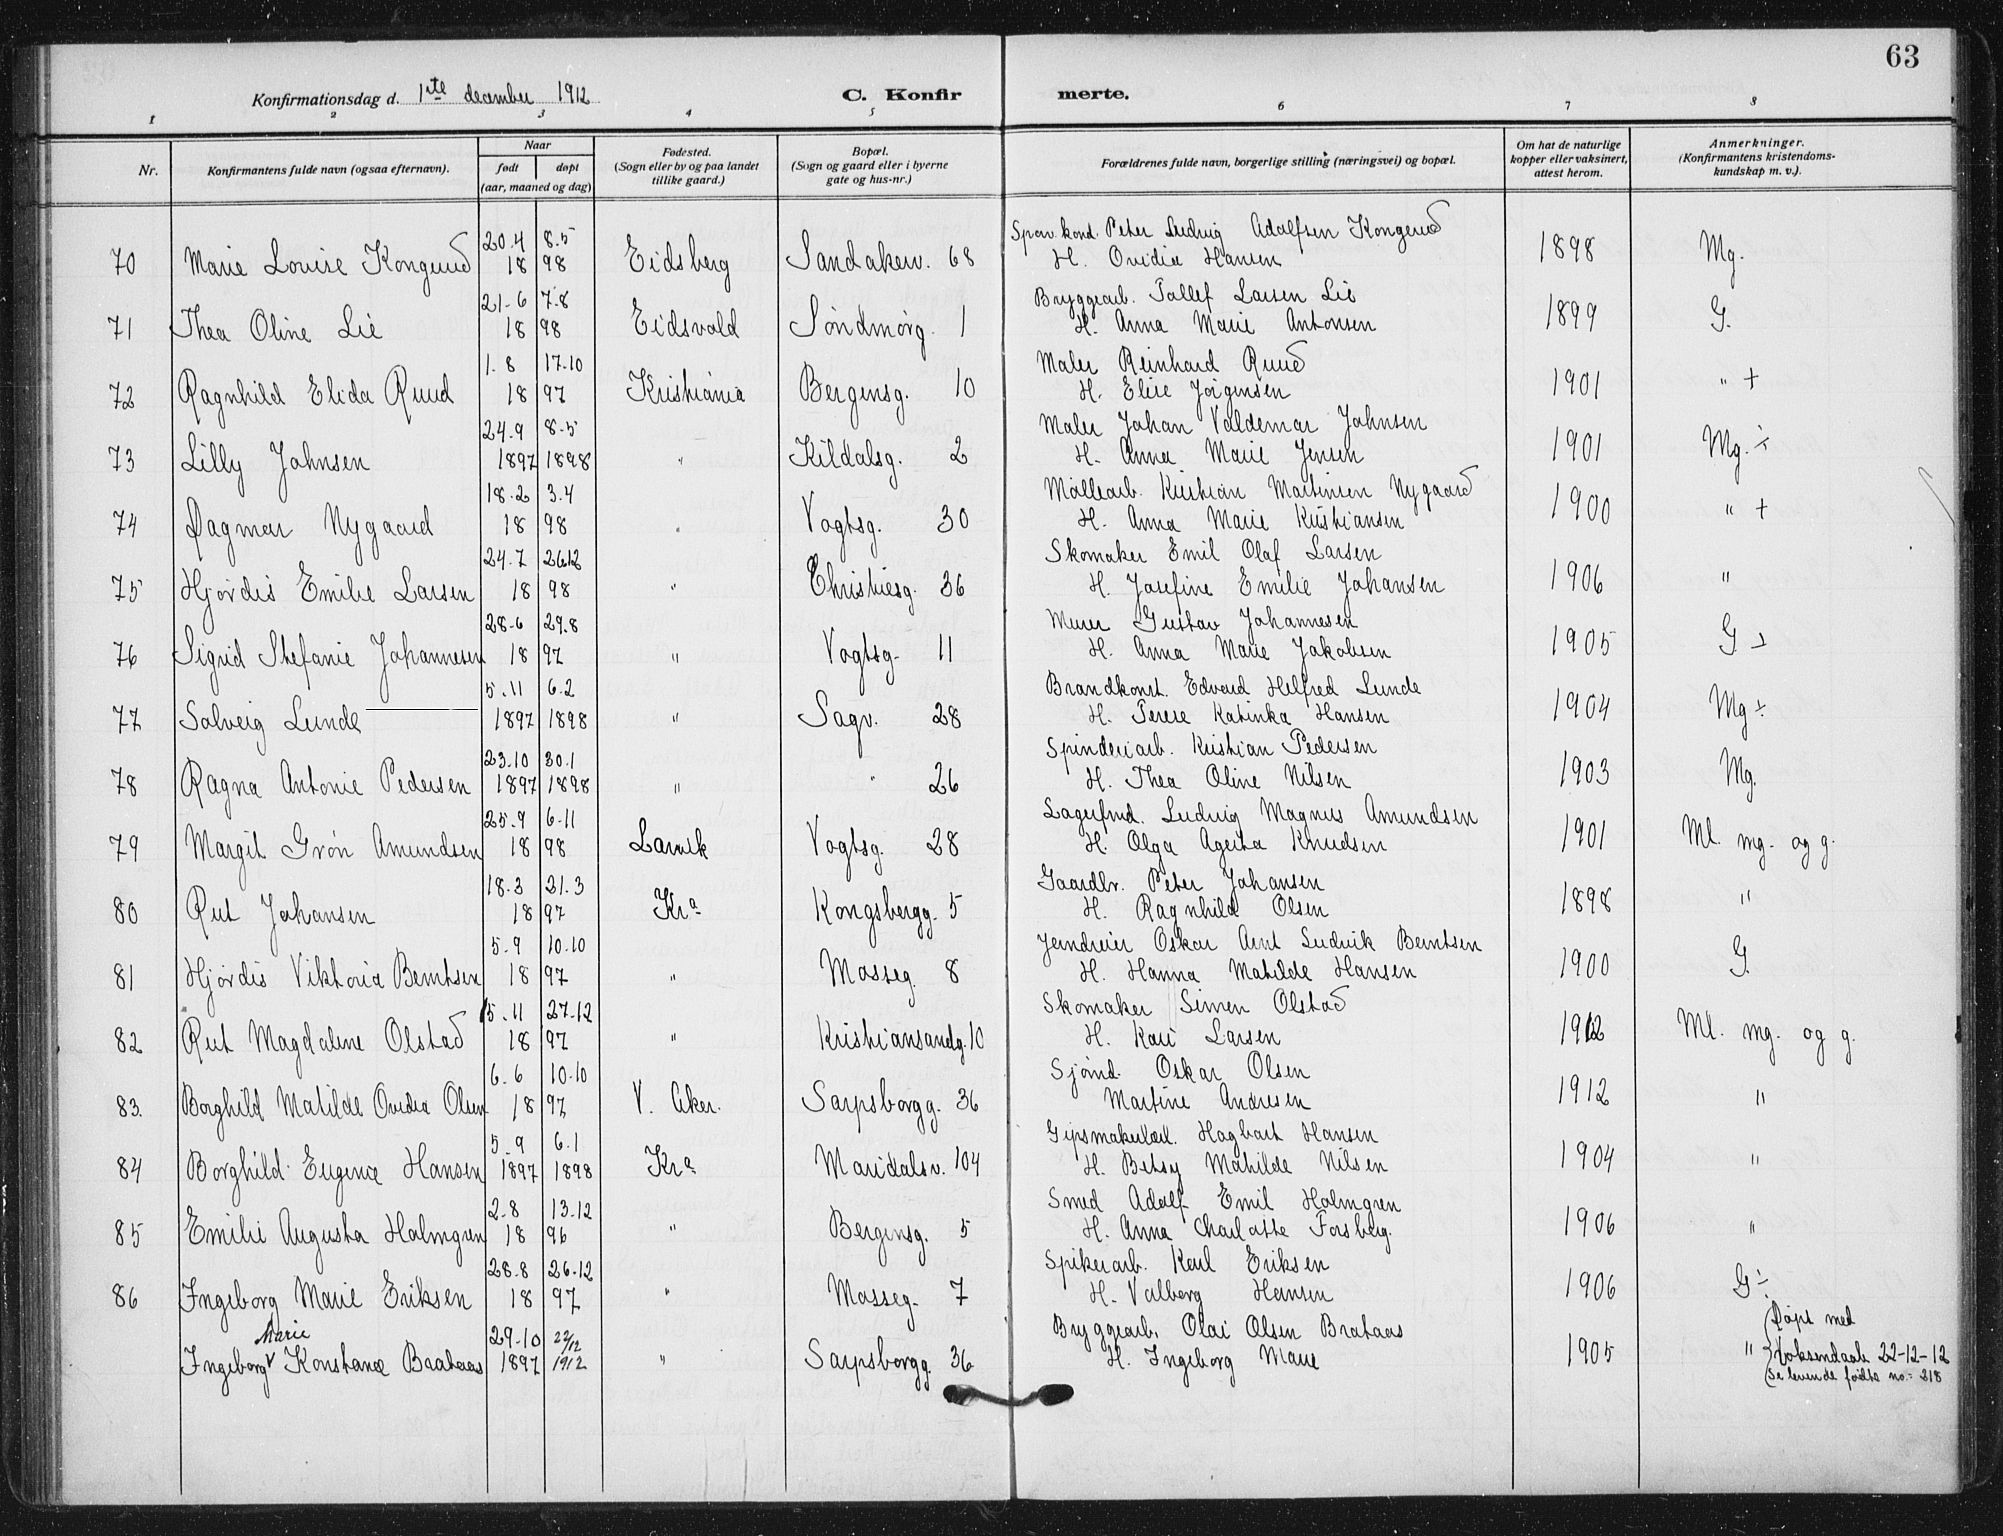 63
Konfirmationsdag d. 1ste december 1912 C. Konfirmerte.
1 2 3 4 5 6 7 8
Nr. Konfirmantens fulde navn (ogsaa efternavn). Naar født døpt (aar, maaned og dag) Fødested. (Sogn eller by og paa landet tillike gaard.) Bopæl. (Sogn og gaard eller i byerne gate og hus-nr.) Forældrenes fulde navn, borgerlige stilling (næringsvei) og bopæl. Om har de naturlige kopper eller vaksinert, attest herom. Anmerkninger. (Konfirmantens kristendoms-kundskap m. v.).
20.4 8.5 Sporv.kond. Peter Ludvig Adolfsen Kongerud
70 Marie Lovise Kongerud 18 98 Eidsberg Sandakerv. 68 H. Ovidia Hansen 1898 Mg.
21-6 7.8 Bryggearb. Tollef Larsen Lie
71 Thea Oline Lie 18 98 Eidsvold Søndmørg. 1 H. Anna Marie Antonsen 1899 G.
1. 8 17.10 Maler Reinhard Ruud
72 Ragnhild Elida Ruud 18 97 Kristiania Bergensg. 10 H. Elise Jørgensen 1901 " +
24.9 8.5 Maler Johan Valdemar Johnsen
73 Lilly Johnsen 1897 1898 " Kildalsg. 2 H. Anna Marie Jensen 1901 Mg. ÷
18.2 3.4 Møllearb. Kristian Martinsen Nygaard
74 Dagmar Nygaard 18 98 " Vogtsg. 30 H. Anna Marie Kristiansen 1900 " +
24.7 26.12 Skomaker Emil Olaf Larsen
75 Hjørdis Emilie Larsen 18 98 " Christiesg. 36 H. Josefine Emilie Johansen 1906 "
28.6 29.8 Murer Gustav Johannesen
76 Sigrid Stefanie Johannesen 18 97 " Vogtsg. 11 H. Anna Marie Jakobsen 1905 G
5.11 6.2 Brandkonst. Edvard Helfred Lunde
77 Solveig Lunde 1897 1898 " Sagv. 28 H. Terese Katinka Hansen 1904 Mg ÷
23.10 30.1 Spinderiarb. Kristian Pedersen
78 Ragna Antonie Pedersen 1897 1898 " " 26 H. Thea Oline Nilsen 1903 Mg.
25.9 6.11 Lagerfmd. Ludvig Magnus Amundsen
79 Margit Grøn Amundsen 18 98 Larvik Vogtsg. 28 H. Olga Ageita Knudsen 1901 Ml. mg. og g.
18.3 21.3 Gaardbr. Peter Johansen
80 Rut Johansen 18 97 Kra Kongsbergg. 5 H. Ragnhild Olsen 1898 "
5.9 10.10 Jerndreier Oskar Arnt Ludvik Berntsen
81 Hjørdis Viktoria Berntsen 18 97 " Mosseg. 8 H. Hanna Matilde Hansen 1900 G.
15.11 27.12 Skomaker Simen Olstad
82 Rut Magdalene Olstad 18 97 " Kristiansandg. 10 H. Kari Larsen 1912 Ml. mg. og g.
6.6 10.10 Sjømd. Oskar Olsen
83. Borghild Matilde Ovidia Olsen 18 97 V. Aker. Sarpsborgg. 36 Martine Andresen 1912 "
5.9 6.1 Gipsmakerlærl. Hagbart Hansen
84 Borghild Eugenie Hansen 1897 1898 Kra Maridalsv. 104 H. Betsy Mathilde Nilsen 1904 "
2.8 13.12 Smed Adolf Emil Holmgren
85 Emilie Augusta Holmgren 18 96 " Bergensg. 5 H. Anna Charlotte Forsberg. 1906 "
28.8 26.12 Spikerarb. Karl Eriksen
86 Ingeborg Marie Eriksen 18 97 " Mosseg. 7 H. Valborg Hansen 1906 G ÷
Marie 29.10 22/12 Bryggearb. Olai Olsen Brataas Døpt med
Ingeborg v Konstance Brataas 1897 1912 " Sarpsborgg. 36 H. Ingeborg Marie 1905 " Voksendaab 22-12-12
Se levende fødte no.= 218